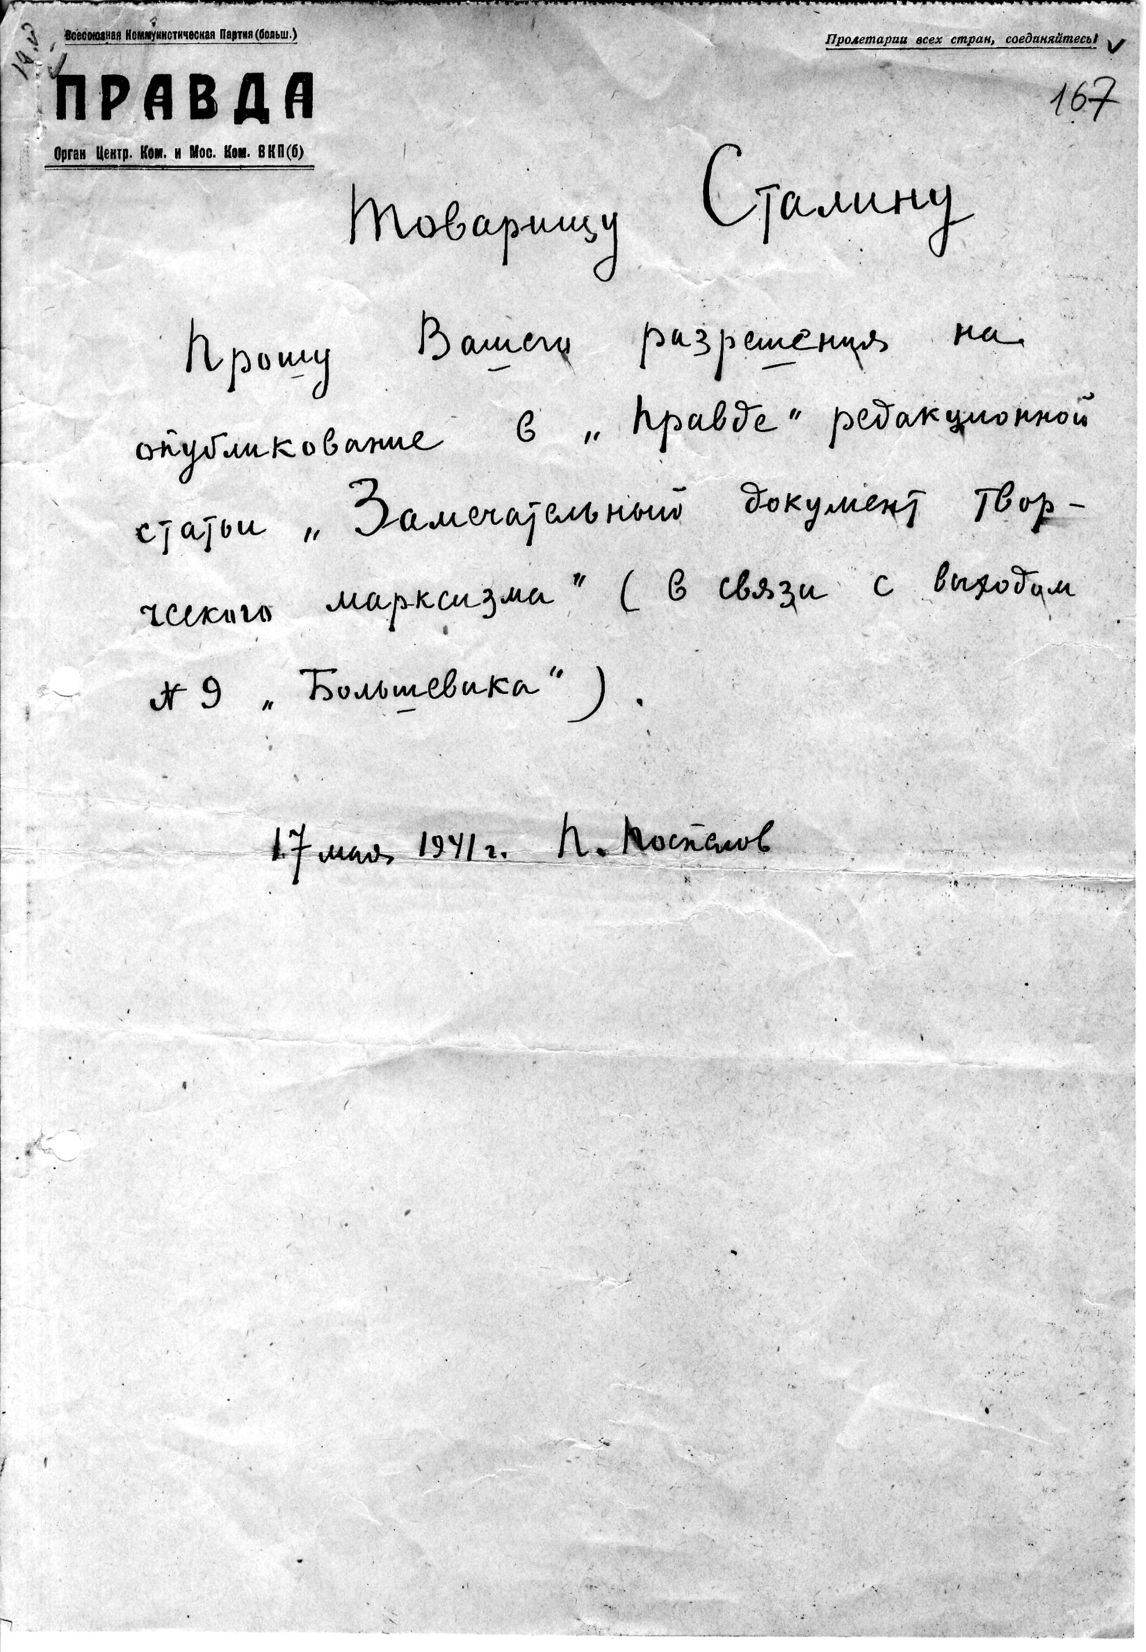 Всесоюзная Коммунистическая Партия (больш.)
Пролетарии всех стран, соединяйтесь!
ПРАВДА
167
Орган Центр. Ком. и Мос. Ком. ВКП(б)
Товарищу Сталину
Прошу Вашего разрешения на
опубликование в „Правде“ редакционной
статьи „Замечательный документ твор-
ческого марксизма“ (в связи с выходом
№ 9 „Большевика“).
17 мая 1941 г. П. Поспелов